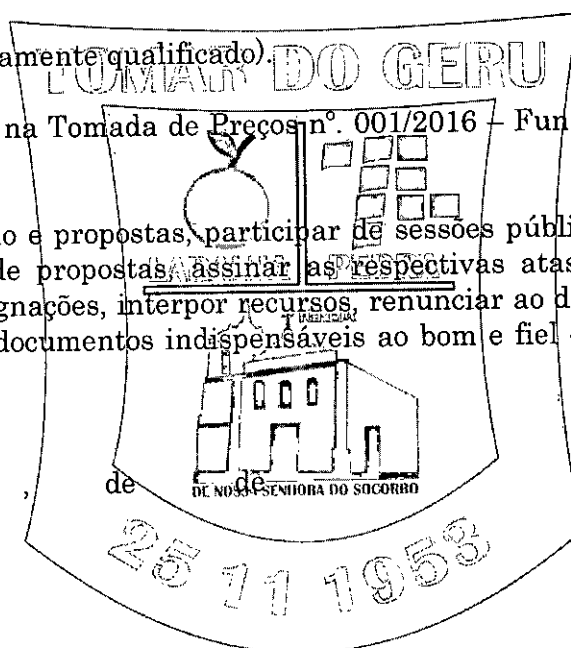 amente qualificado).
TOMAR DO GERU
na Tomada de Preços nº. 001/2016 – Fun
o e propostas, participar de sessões públi
de propostas, assinar as respectivas atas
LARANJA PEDRA
gnações, interpor recursos, renunciar ao d
documentos indispensáveis ao bom e fiel
, de de
DE NOSSA SENHORA DO SOCORRO
25 11 1953